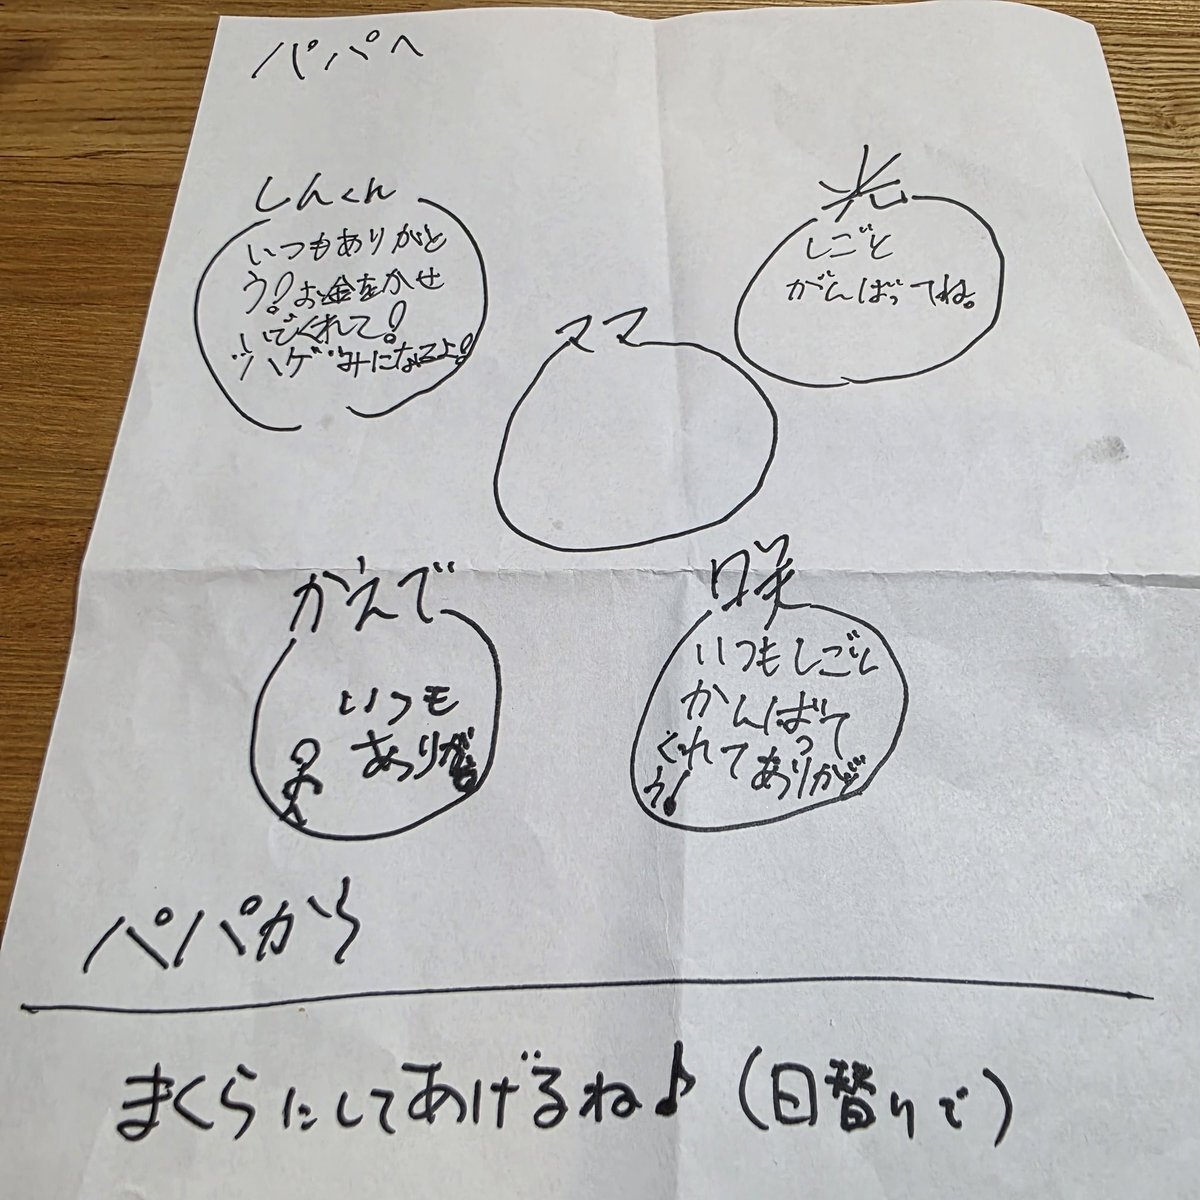 パパへ
しんくん
いつもありがと
う!お金をかせ
いでくれて!
ハゲみになるよ!
光
しごと
がんばってね。
ママ
かえで
いつも
ありがと
咲
いつもしごと
かんばって
くれてありがと
う!
パパから
まくらにしてあげるね♪(日替りで)